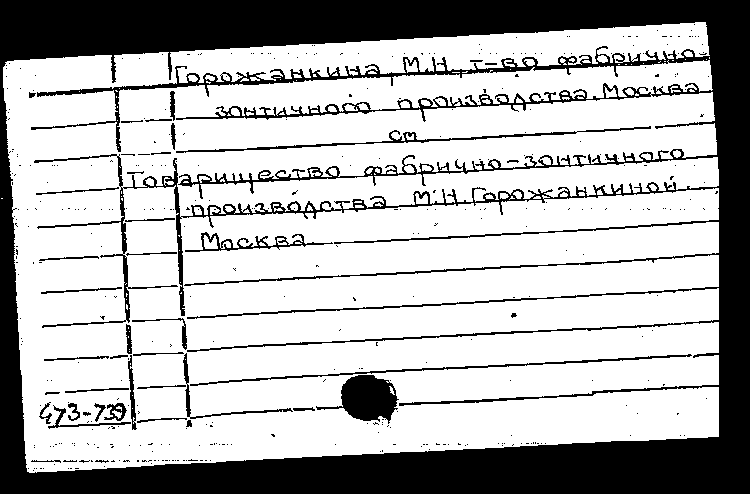 Горожанкина, М.Н., т-во фабрично-
зонтичного производства. Москва
см
Товарищество фабрично-зонтичного
производства М.Н. Горожанкиной.
Москва.
473-739